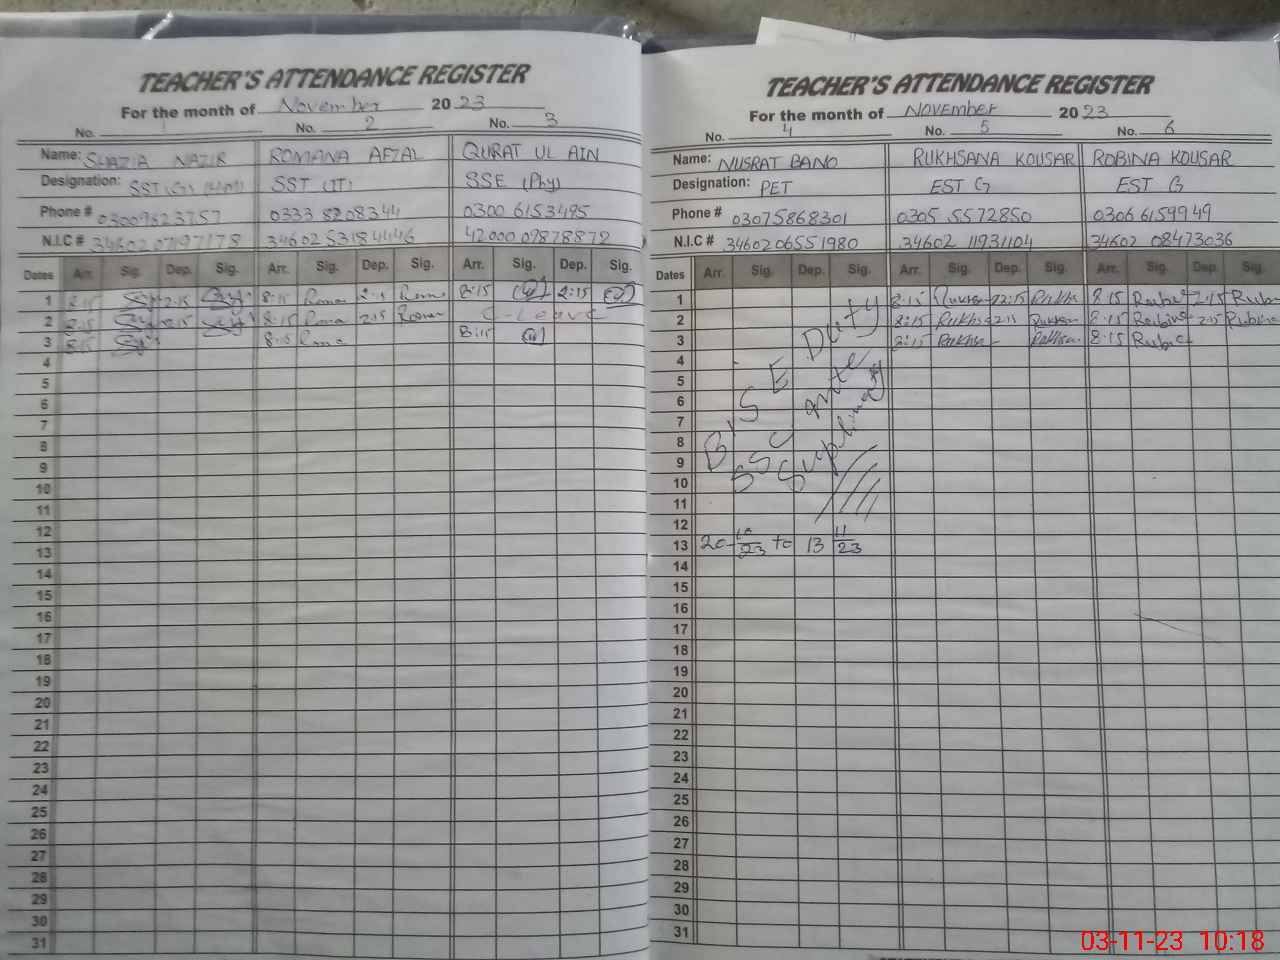 TEACHER'S ATTENDANCE REGISTER
For the month of November 2023
No. 1 No. 2 No. 3
Name: SHAZIA NAZIR ROMANA AFZAL QURAT UL AIN
Designation: SST (IT) SSE (Phy)
Phone # 03009823757 0333 8208344 0300 6153495
N.I.C # 346020 7197178 34602 5318 4446 42000 09878872
Dates Arr. Sig. Dep. Sig. Arr. Sig. Dep. Sig. Arr. Sig. Dep. Sig.
1 8:15 2:15 8:15 Roma 2:15 Roma 8:15 2:15
2 8:15 2:15 8:15 Roma 2:15 Roma C-Leave
3 8:15 8:15 Roma 8:15
4
5
6
7
8
9
10
11
12
13
14
15
16
17
18
19
20
21
22
23
24
25
26
27
28
29
30
31
TEACHER'S ATTENDANCE REGISTER
For the month of November 2023
No. 4 No. 5 No. 6
Name: NUSRAT BANO RUKHSANA KOUSAR ROBINA KOUSAR
Designation: PET EST G EST G
Phone # 03075868301 0305 5572850 0306 6159949
N.I.C # 3460206551980 34602 11931104 34602 08473036
Dates Arr. Sig. Dep. Sig. Arr. Sig. Dep. Sig. Arr. Sig. Dep. Sig.
1 8:15 2:15 8:15 2:15
2 8:15 2:15 8:15 2:15
3 8:15 8:15
4
5
6
7
8
9
10
11
12
13 20-10/23 to 13 11/23
14
15
16
17
18
19
20
21
22
23
24
25
26
27
28
29
30
31
BISE Duty
SSC
03-11-23 10:18